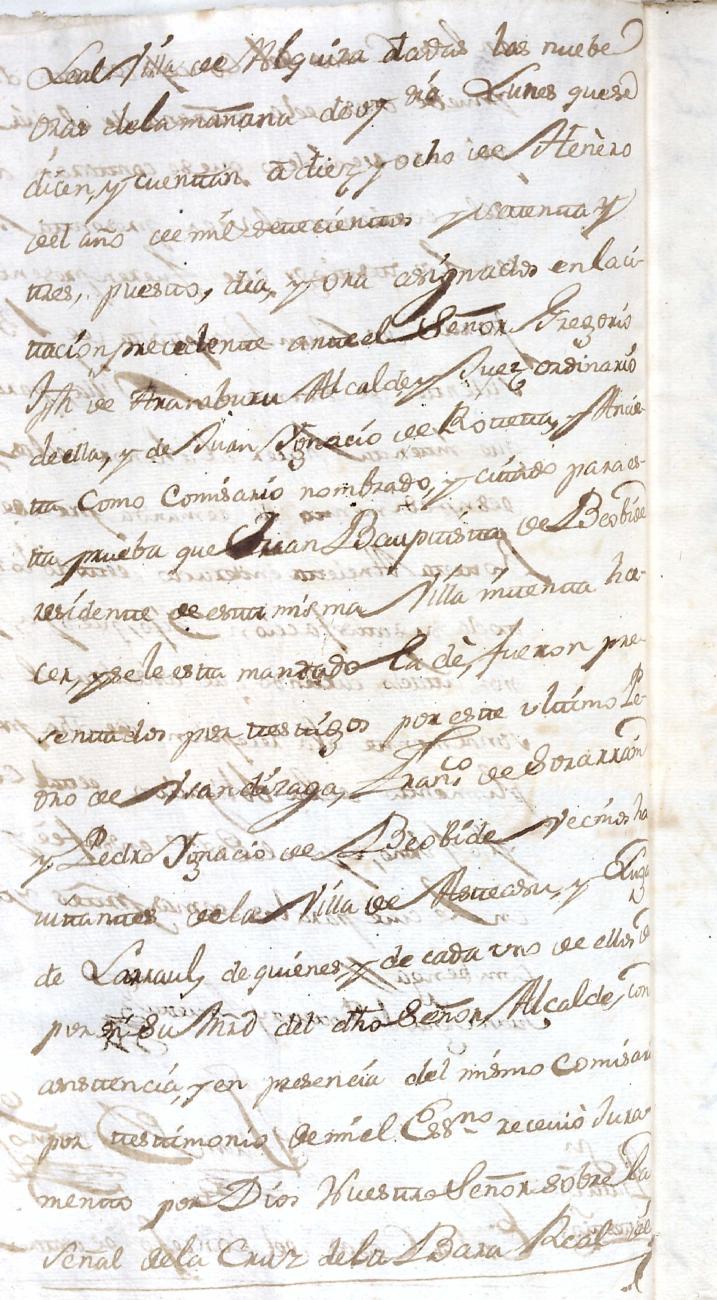 Leal Villa de Alquiza dadas las nuebe
oras de la mañana de oy dia Lunes que se
dicen, y cuentan a diez y ocho de Henero
del año de mil setecientos y setenta y
tres, puesto, dia, y ora asignados en la ci-
tacion precedente ante el Señor Gregorio
Jph de Aranburu Alcalde y Juez ordinario
de ella, y de Juan Ygnacio de Rotteta, y
tta Como Comisario nombrado, y citado para es-
tta prueba que Juan Baupttistta de Beobide
residente de estta misma Villa intentta ha-
cer, y se le esta mandado la dè, fueron pre-
senttados por testigos por este ultimo Pe-
dro de Franco de Sorarrain
y Pedro Ygnacio de Beobide vecinos ha
vittantes de la Villa de Astteasu, y Lugar
de Larraul, de quienes, y de cada vno de ellos
por su Mrd del dho Señor Alcalde, con
asistencia, y en presencia del mismo Comisari
por testimonio de mi el Essno receviò Jura-
mento por Dios Nuestro Señor sobre la
señal de la Cruz de la Bara Real del